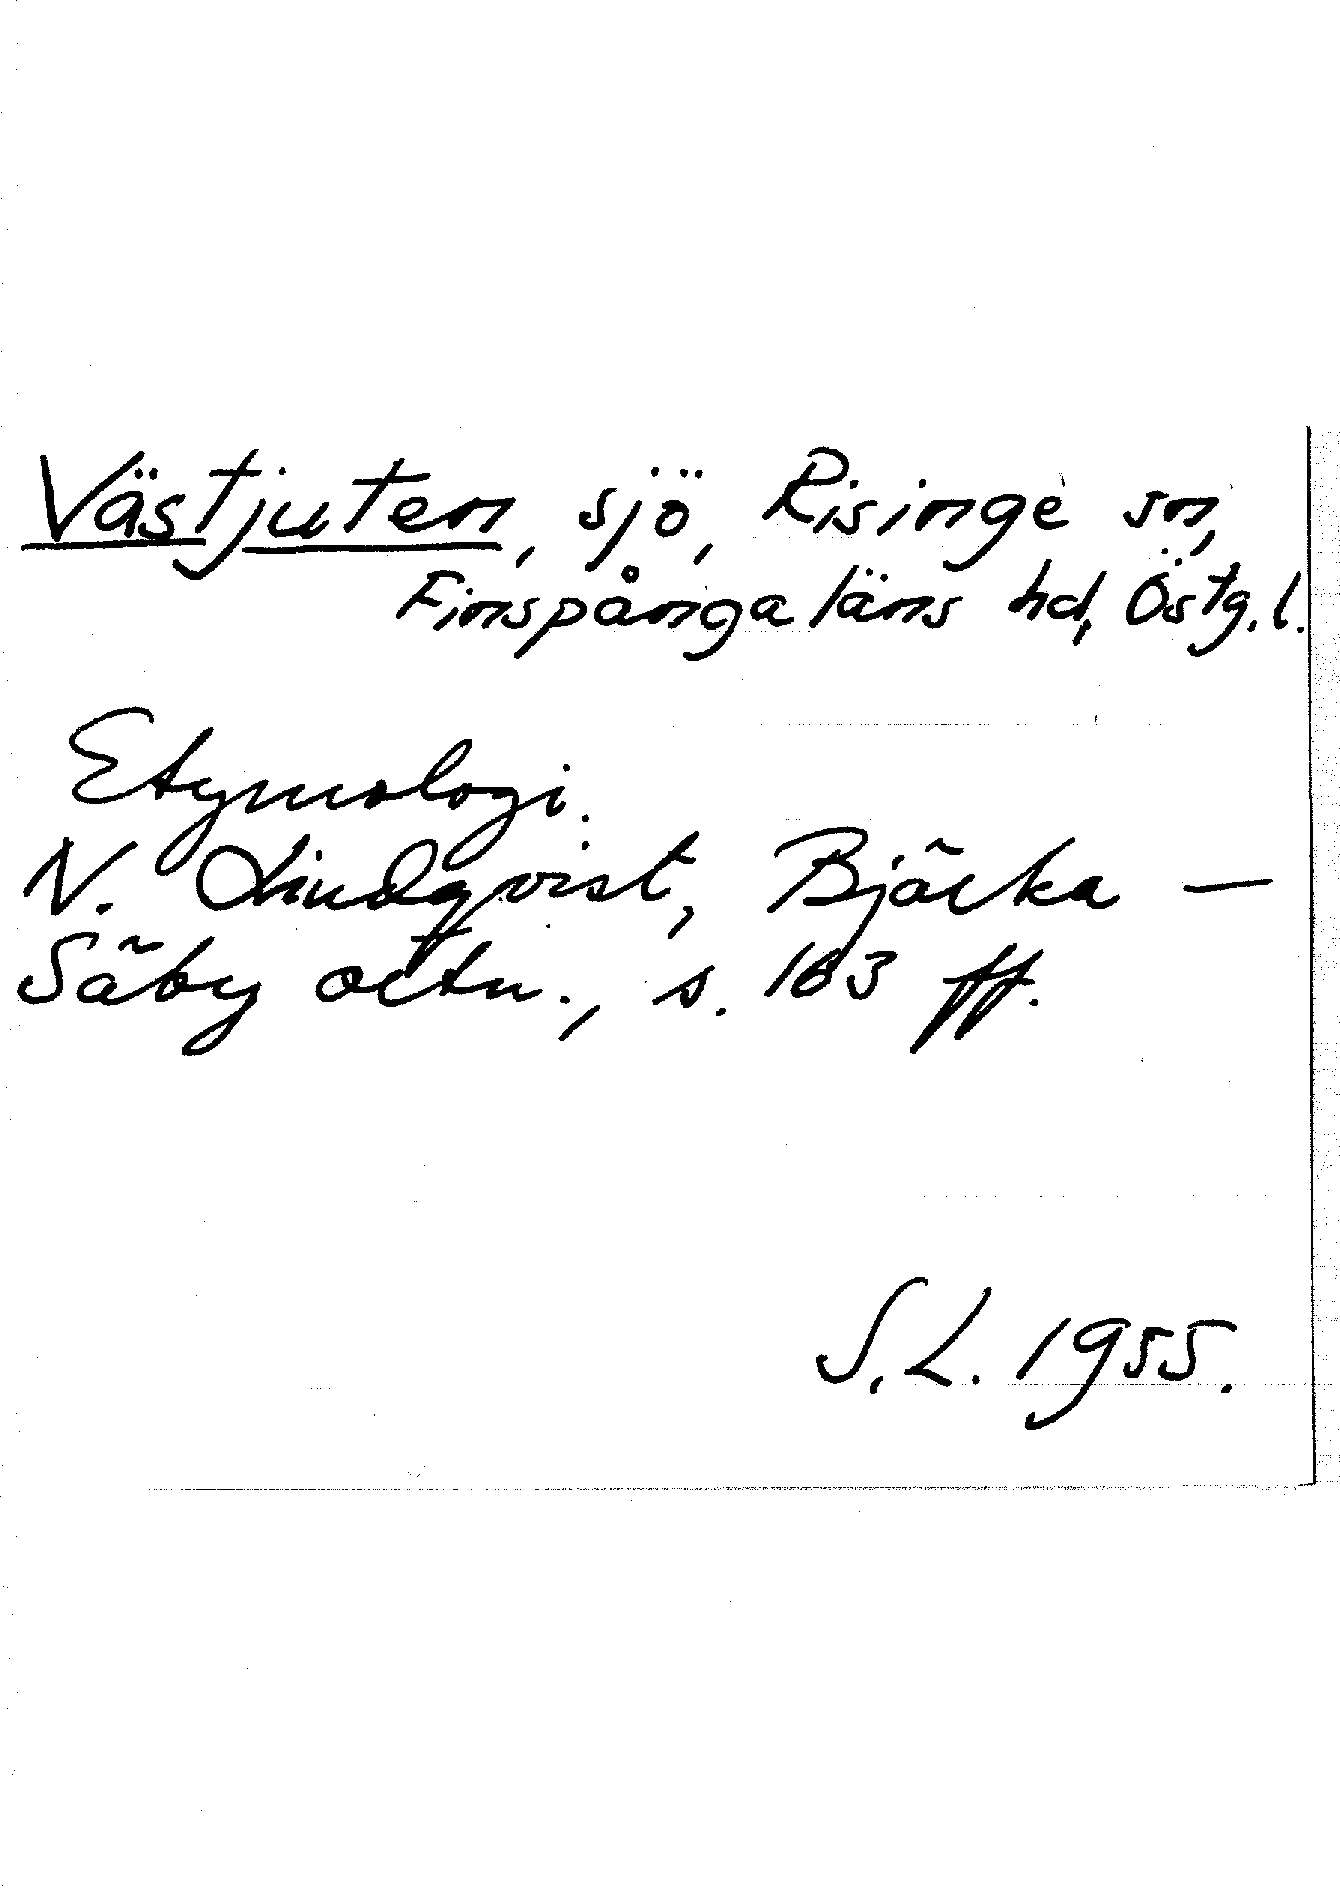 Västjuten, sjö, Risinge sn,
Finspånga läns hd, Östg. l.
Etymologi.
N. Lindqvist, Bjärka –
Säby ortn., s. 163 ff.
S. L. 1955.